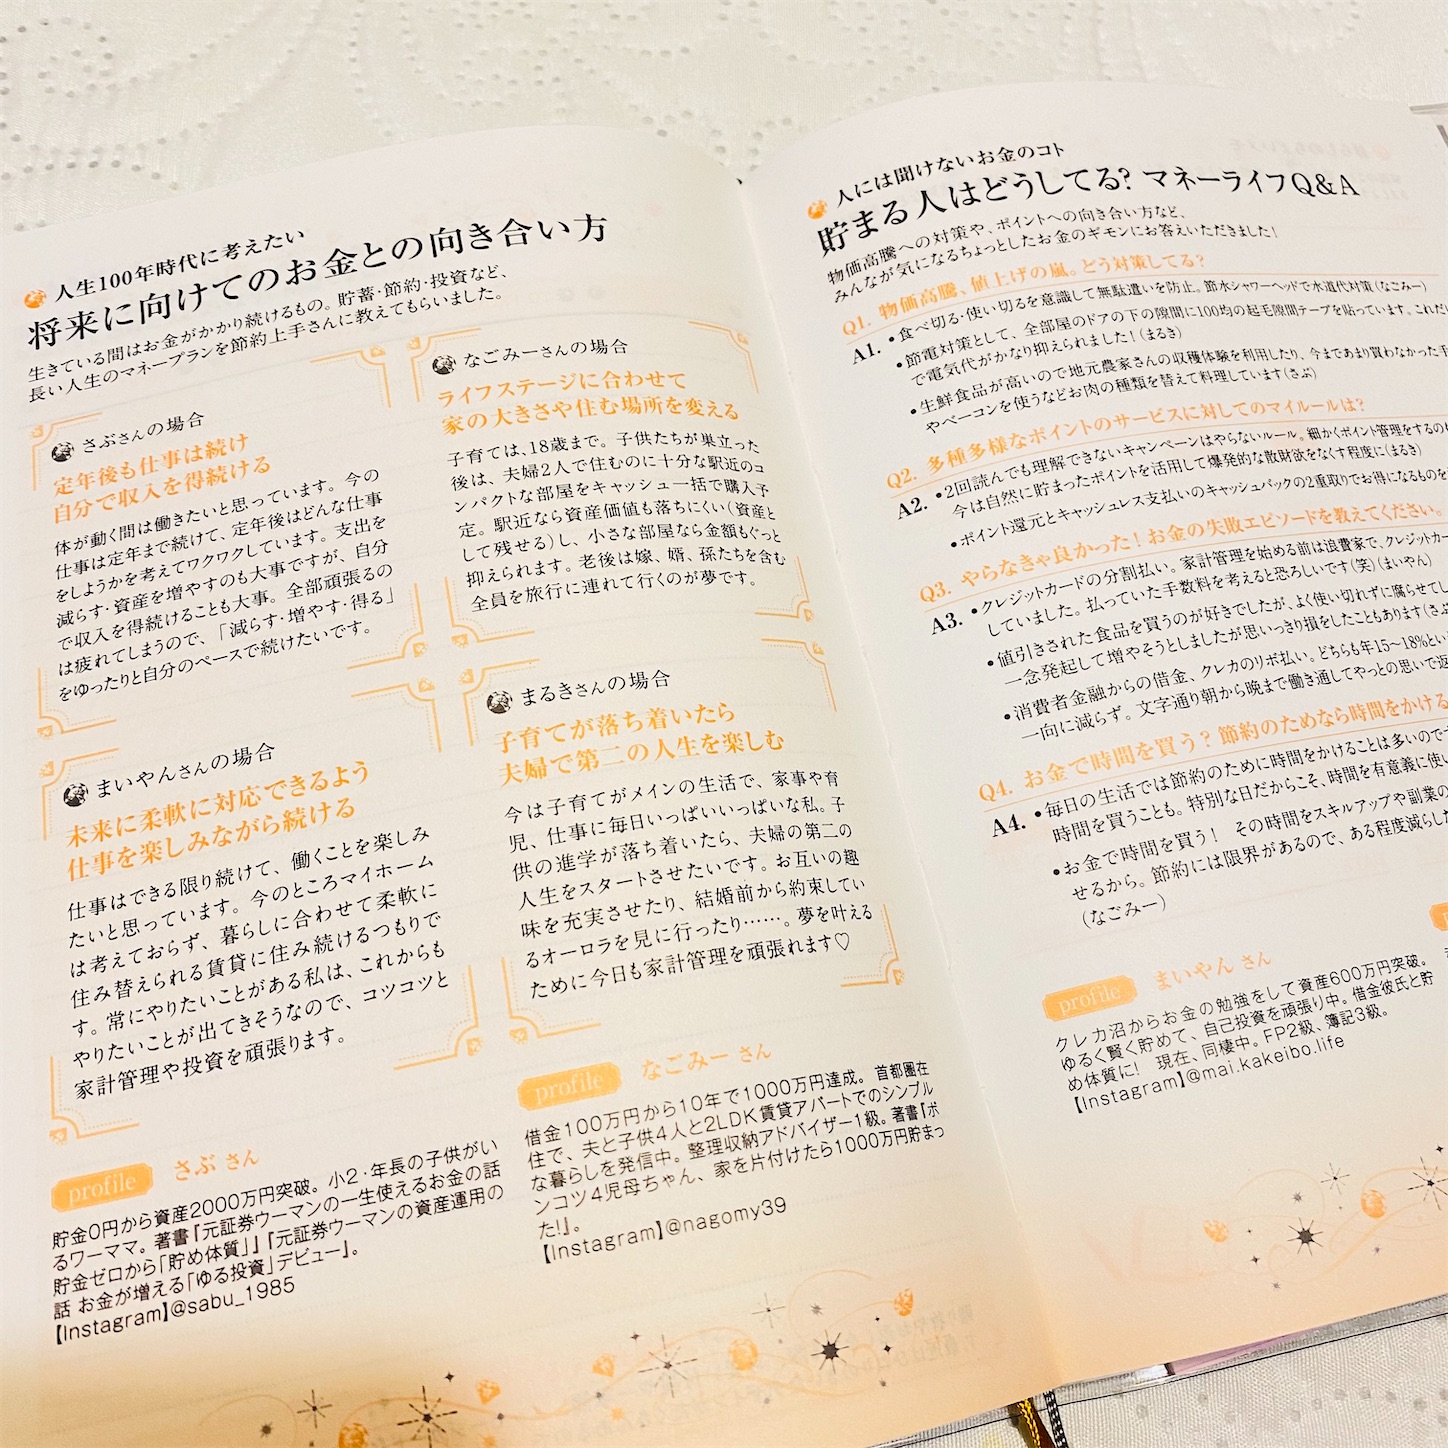 人生100年時代に考えたい
将来に向けてのお金との向き合い方
生きている間はお金がかかり続けるもの。貯蓄・節約・投資など、
長い人生のマネープランを節約上手さんに教えてもらいました。
さぶさんの場合
定年後も仕事は続け
自分で収入を得続ける
体が動く間は働きたいと思っています。今の
仕事は定年まで続けて、定年後はどんな仕事
をしようかを考えてワクワクしています。支出を
減らす・資産を増やすのも大事ですが、自分
で収入を得続けることも大事。全部頑張るの
は疲れてしまうので、「減らす・増やす・得る」
をゆったりと自分のペースで続けたいです。
なごみーさんの場合
ライフステージに合わせて
家の大きさや住む場所を変える
子育ては、18歳まで。子供たちが巣立った
後は、夫婦2人で住むのに十分な駅近のコ
ンパクトな部屋をキャッシュ一括で購入予
定。駅近なら資産価値も落ちにくい(資産と
して残せる)し、小さな部屋なら金額もぐっと
抑えられます。老後は嫁、婿、孫たちを含む
全員を旅行に連れて行くのが夢です。
まいやんさんの場合
未来に柔軟に対応できるよう
仕事を楽しみながら続ける
仕事はできる限り続けて、働くことを楽しみ
たいと思っています。今のところマイホーム
は考えておらず、暮らしに合わせて柔軟に
住み替えられる賃貸に住み続けるつもりで
す。常にやりたいことがある私は、これからも
やりたいことが出てきそうなので、コツコツと
家計管理や投資を頑張ります。
まるきさんの場合
子育てが落ち着いたら
夫婦で第二の人生を楽しむ
今は子育てがメインの生活で、家事や育
児、仕事に毎日いっぱいいっぱいな私。子
供の進学が落ち着いたら、夫婦の第二の
人生をスタートさせたいです。お互いの趣
味を充実させたり、結婚前から約束してい
るオーロラを見に行ったり……。夢を叶える
ために今日も家計管理を頑張れます♡
profile さぶ さん
貯金0円から資産2000万円突破。小2・年長の子供がい
るワーママ。著書『元証券ウーマンの一生使えるお金の話
貯金ゼロから「貯め体質」』『元証券ウーマンの資産運用の
話 お金が増える「ゆる投資」デビュー』。
【Instagram】@sabu_1985
profile なごみー さん
借金100万円から10年で1000万円達成。首都圏在
住で、夫と子供4人と2LDK賃貸アパートでのシンプル
な暮らしを発信中。整理収納アドバイザー1級。著書『ポ
ンコツ4児母ちゃん、家を片付けたら1000万円貯まっ
た!』。
【Instagram】@nagomy39
人には聞けないお金のコト
貯まる人はどうしてる? マネーライフQ&A
物価高騰への対策や、ポイントへの向き合い方など、
みんなが気になるちょっとしたお金のギモンにお答えいただきました!
Q1. 物価高騰、値上げの嵐。どう対策してる?
A1. •食べ切る・使い切るを意識して無駄遣いを防止。節水シャワーヘッドで水道代対策(なごみー)
•節電対策として、全部屋のドアの下の隙間に100均の起毛隙間テープを貼っています。これだけ
で電気代がかなり抑えられました!(まるき)
•生鮮食品が高いので地元農家さんの収穫体験を利用したり、今まであまり買わなかった手
やベーコンを使うなどお肉の種類を替えて料理しています(さぶ)
Q2. 多種多様なポイントのサービスに対してのマイルールは?
A2. •2回読んでも理解できないキャンペーンはやらないルール。細かくポイント管理をするの
今は自然に貯まったポイントを活用して爆発的な散財欲をなくす程度に(まるき)
•ポイント還元とキャッシュレス支払いのキャッシュバックの2重取りでお得になるものを
Q3. やらなきゃ良かった!お金の失敗エピソードを教えてください。
A3. •クレジットカードの分割払い。家計管理を始める前は浪費家で、クレジットカー
していました。払っていた手数料を考えると恐ろしいです(笑)(まいやん)
•値引きされた食品を買うのが好きでしたが、よく使い切れずに腐らせてし
一念発起して増やそうとしましたが思いっきり損をしたこともあります(さぶ
•消費者金融からの借金、クレカのリボ払い。どちらも年15～18%とい
一向に減らず。文字通り朝から晩まで働き通してやっとの思いで返
Q4. お金で時間を買う?節約のためなら時間をかける
A4. •毎日の生活では節約のために時間をかけることは多いので
時間を買うことも。特別な日だからこそ、時間を有意義に使い
•お金で時間を買う! その時間をスキルアップや副業の
せるから。節約には限界があるので、ある程度減らした
(なごみー)
profile まいやん さん
クレカ沼からお金の勉強をして資産600万円突破。
ゆるく賢く貯めて、自己投資を頑張り中。借金彼氏と貯
め体質に! 現在、同棲中。FP2級、簿記3級。
【Instagram】@mai.kakeibo.life